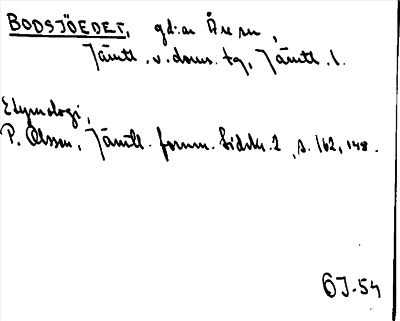 BODSJÖEDET, gd:ar Åre sn,
Jämtl. v. doms. tg, Jämtl. l.
Etymologi,
P. Olsson, Jämtl. fornm. Tidskr. 2, s. 162, 148.
OJ-54